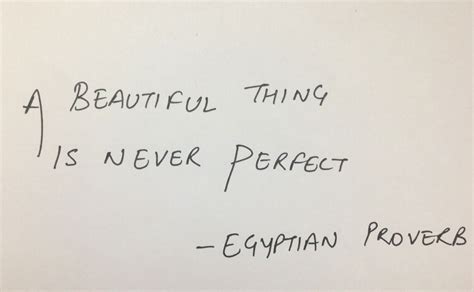 A BEAUTIFUL THING
IS NEVER PERFECT
- EGYPTIAN PROVERB